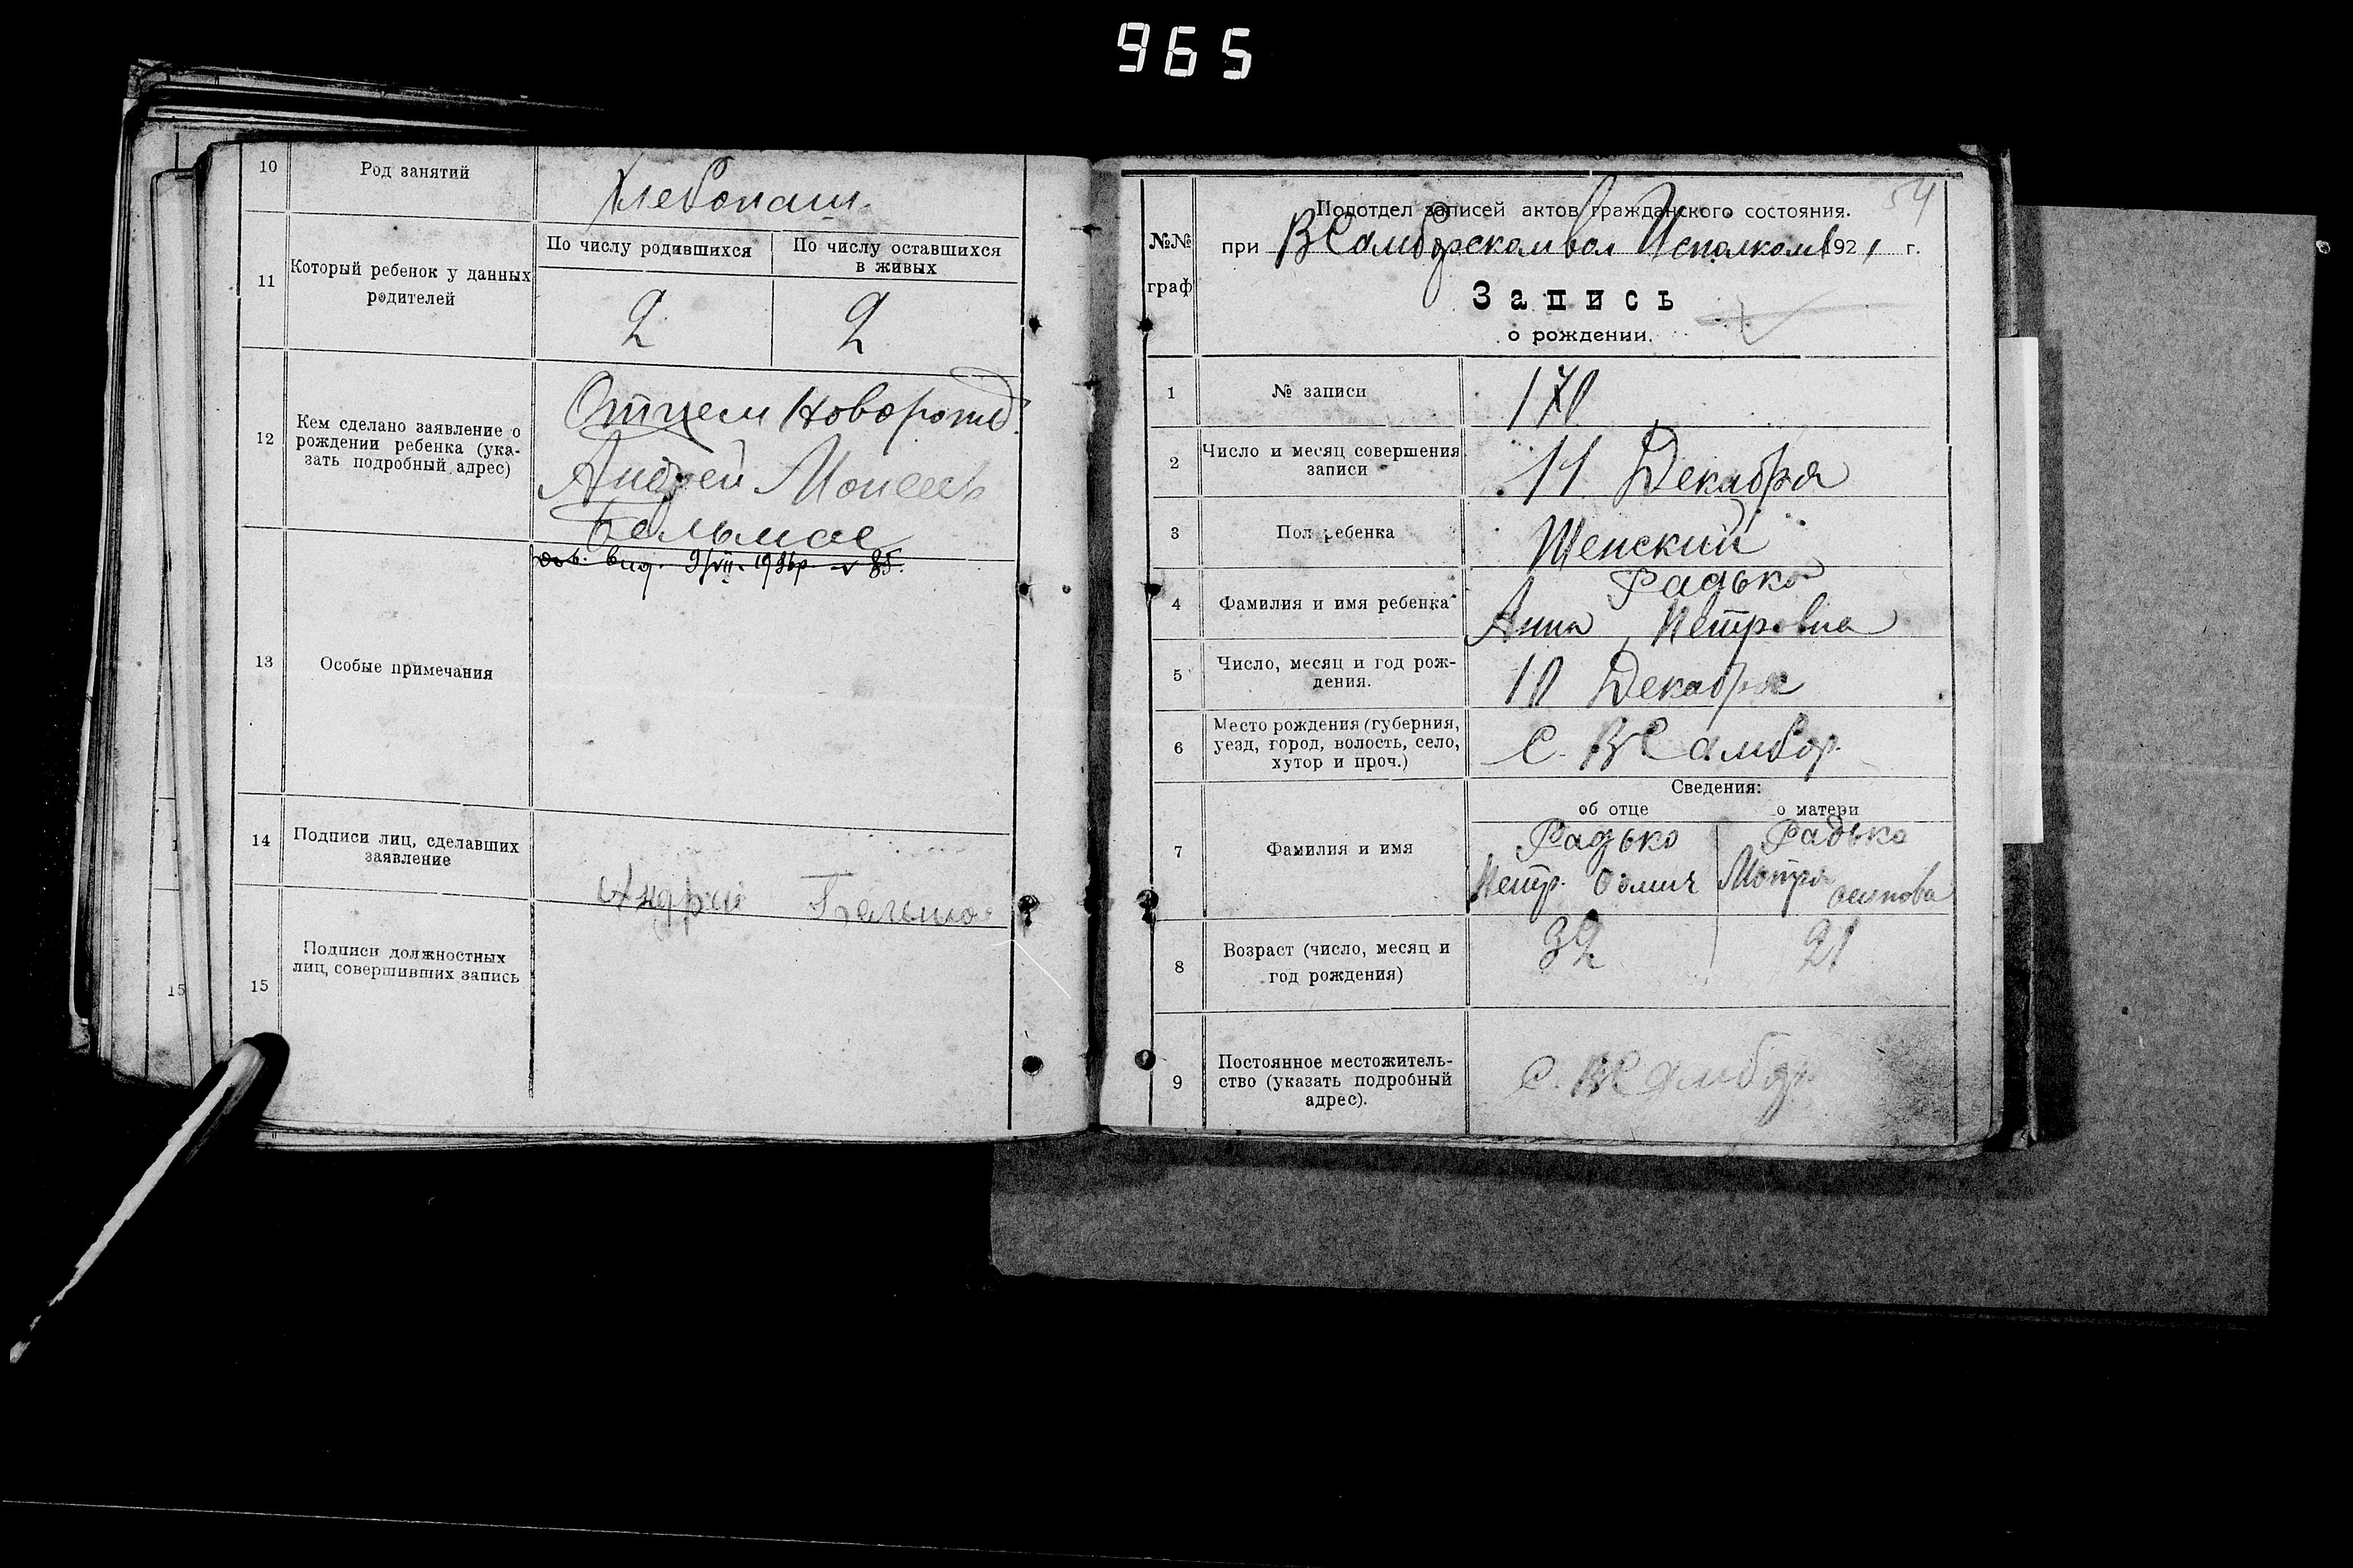 965
10 Род занятий Хлебопаш.
11 Который ребенок у данных родителей
По числу родившихся По числу оставшихся в живых
2 2
12 Кем сделано заявление о
рождении ребенка (ука-
зать подробный адрес)
Отцем Новорожд.
Андрей Моисеев
Бельмас
13 Особые примечания
14 Подписи лиц, сделавших
заявление
Андрей
15 Подписи должностных
лиц, совершивших запись
15
54
№№
граф
Подотдел записей актов гражданского состояния.
при ВСамборском вол Исполком 1921 г.
Запись
о рождении.
1 № записи 170
2 Число и месяц совершения
записи
11 Декабря
3 Пол ребенка Женский
4 Фамилия и имя ребенка
Радько
Анна Петровна
5 Число, месяц и год рож-
дения.
10 Декабря
6 Место рождения (губерния,
уезд, город, волость, село,
хутор и проч.)
С. ВСамбор.
Сведения:
об отце о матери
7 Фамилия и имя
Радько Радько
Петр. Мотря
8 Возраст (число, месяц и
год рождения)
32 21
9 Постоянное местожитель-
ство (указать подробный
адрес).
С. ВСамбор.